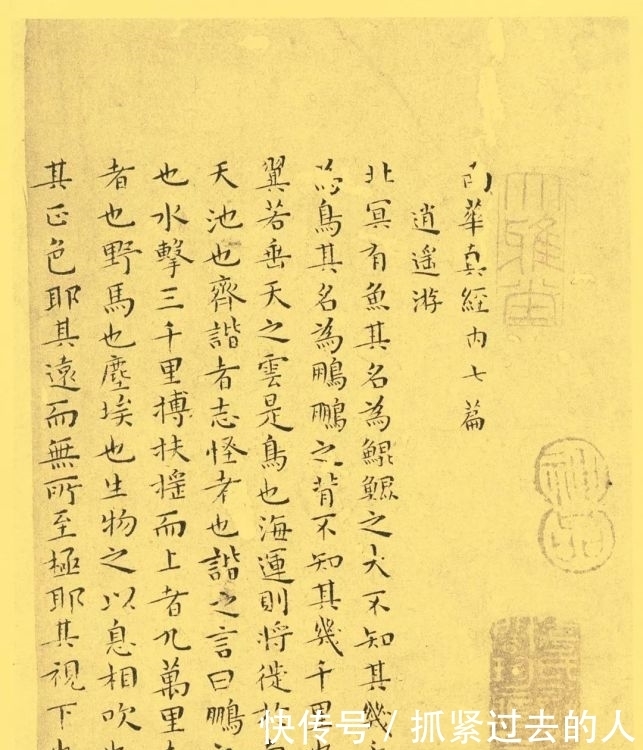 大雅堂
神品
南華真經内七篇
逍遥游
北冥有魚其名為鯤鯤之大不知其幾千
為鳥其名為鵬鵬之背不知其幾千里也
翼若垂天之雲是鳥也海運則將徙於南
天池也齊諧者志怪者也諧之言曰鵬之
也水擊三千里摶扶摇而上者九萬里去
者也野馬也塵埃也生物之以息相吹也
其正色耶其遠而無所至極耶其視下也
快传号 / 抓紧过去的人